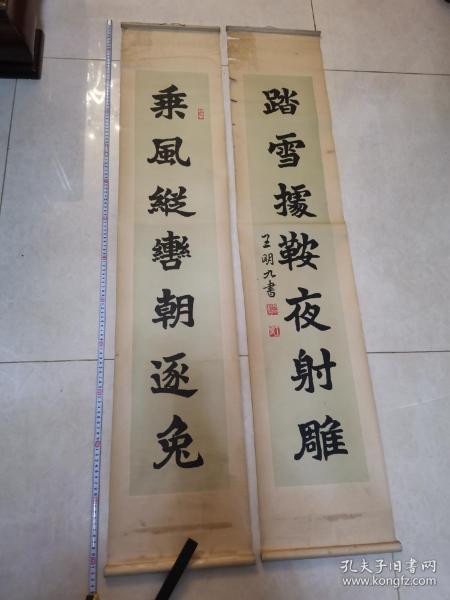 踏雪據鞍夜射雕
王明九書
乘風縱轡朝逐兔
孔夫子旧书网
www.kongfz.com